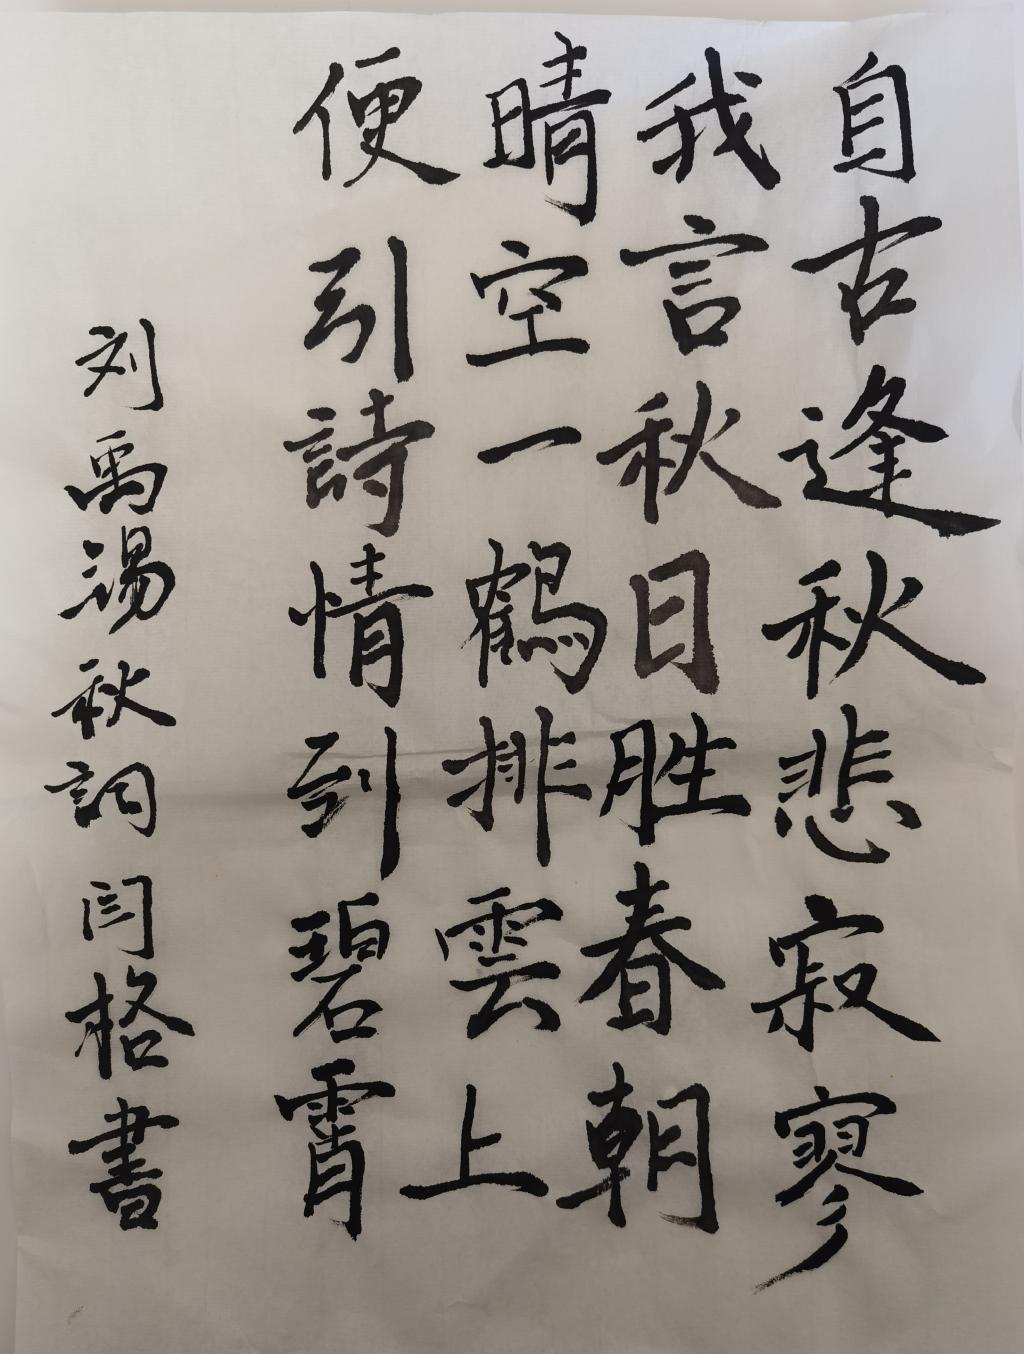 自古逢秋悲寂寥
我言秋日胜春朝
晴空一鶴排雲上
便引詩情到碧霄
刘禹錫秋詞闫格書